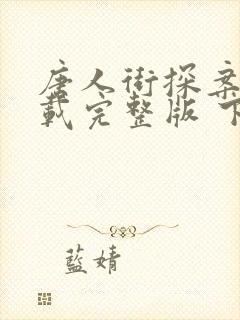 唐人街探案
载完整版 下
藍婧